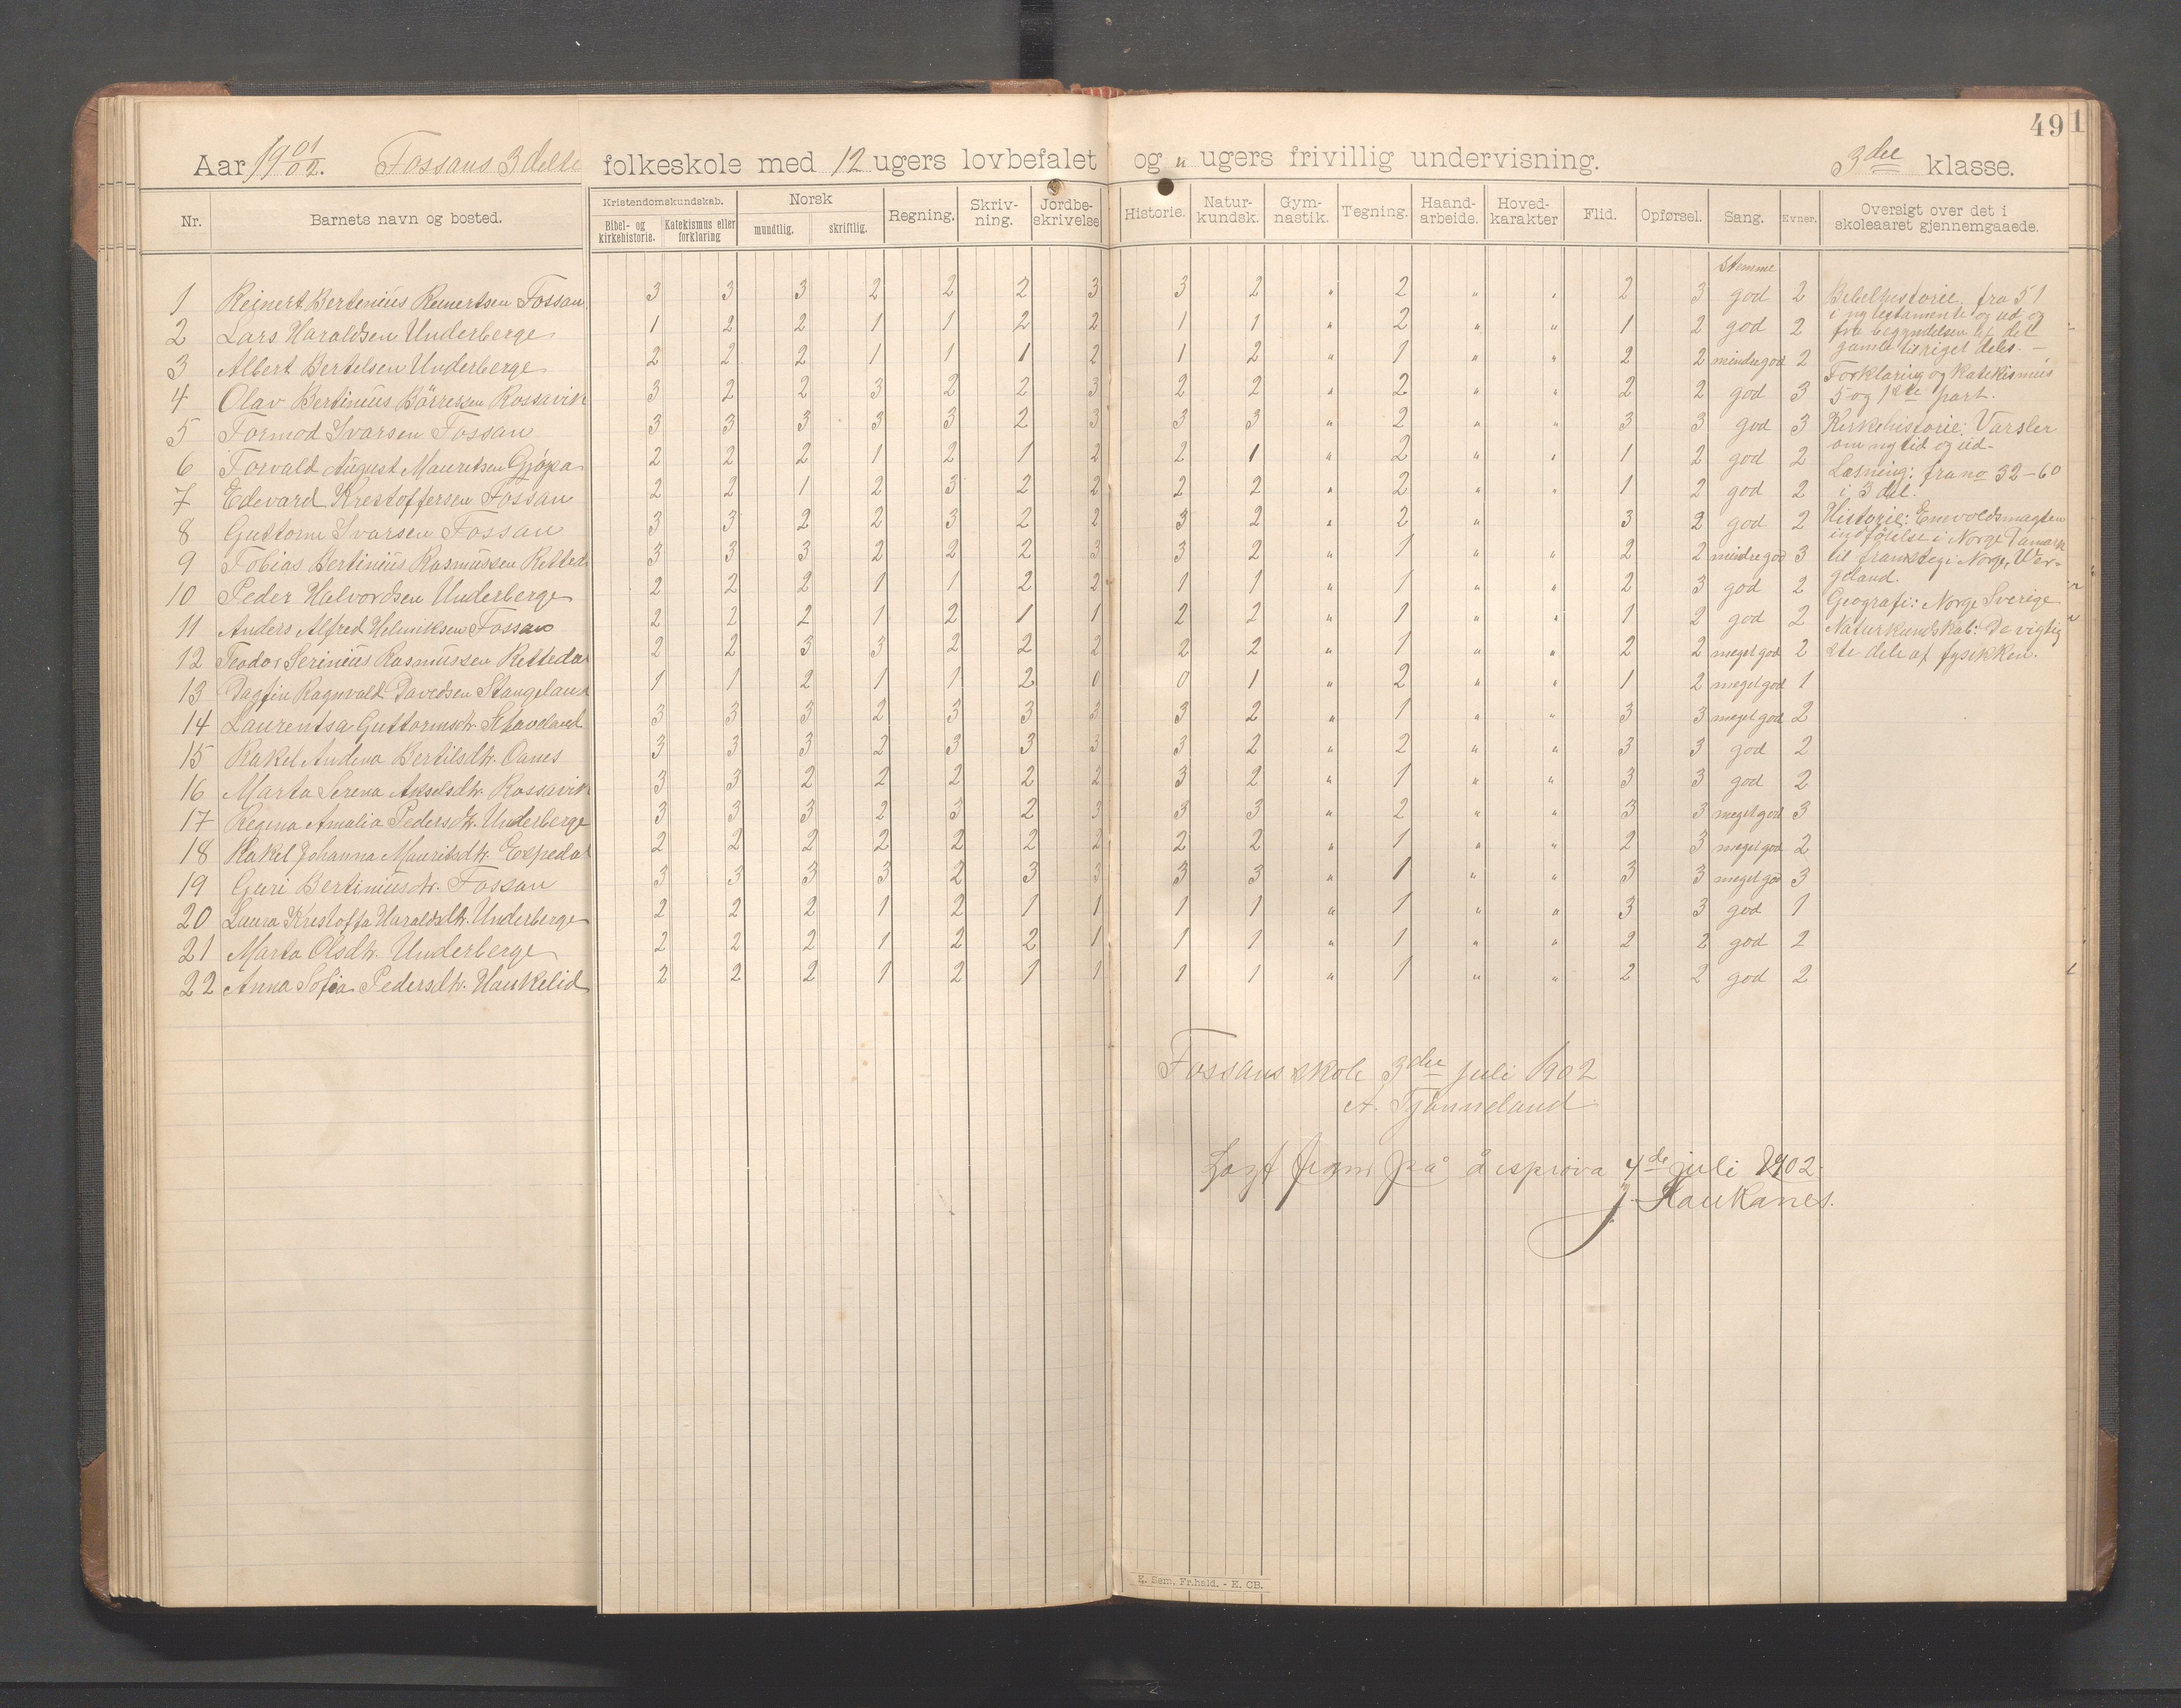 49 1
Aar 1901/02. Fossans 3 delte folkeskole med 12 ugers lovbefalet og " ugers frivillig undervisning. 3die klasse.
Nr. Barnets navn og bosted. Kristendomskundskab. Bibel- og kirkehistorie. Katekismus eller forklaring Norsk mundtlig. skriftlig. Regning. Skriv-ning. Jordbe-skrivelse Historie. Natur-kundsk. Gym-nastik. Tegning. Haand-arbeide. Hoved-karakter Flid. Opførsel. Sang. Evner. Oversigt over det i skoleaaret gjennemgaaede.
stemme
1 Reinert Bertinius Reinertsen Fossan 3 3 3 2 2 2 3 3 2 " 2 " " 2 3 god 2
2 Lars Haraldsen Underberge 1 2 2 1 1 2 2 1 1 " 2 " " 1 2 god 2
3 Albert Bertelsen Underberge 2 2 2 1 1 1 2 1 2 " 1 " " 2 2 mindre god 2
4 Olav Bertinius Börressen Rossavik 3 2 2 3 2 2 3 2 2 " 2 " " 2 2 god 3
5 Tormod Ivarsen Fossan 3 3 3 3 3 2 3 3 3 " 2 " " 3 3 god 3
6 Torvald August Mauritsen Gjøpa 2 2 2 1 2 1 2 2 1 " 2 " " 1 2 god 2
7 Edevard Krestoffersen Fossan 2 2 1 2 3 2 2 2 2 " 2 " " 1 2 god 2
8 Guttorm Ivarsen Fossan 3 3 2 2 3 2 2 3 2 " 2 " 3 2 god 2
9 Tobias Bertinius Rasmussen Retteda 3 3 3 2 2 2 3 3 2 " 1 " " 2 2 mindre god 3
10 Peder Halvordsen Underberge 2 2 2 1 1 2 2 1 1 " 1 " " 2 3 god 2
11 Anders Alfred Helmiksen Fossan 2 2 2 1 2 1 1 2 2 " 1 " " 1 2 god 2
12 Teodor Serinius Rasmussen Rettedal 2 2 3 3 2 2 2 2 2 " 1 " " 2 2 meget god 2
13 Dagfin Ragnvald Davidsen Stangeland 1 1 2 1 1 2 0 0 1 " 2 " " 1 2 meget god 1
14 Laurentsa Guttormsdtr. Schaveland 3 3 3 2 3 3 3 3 2 " 1 " " 3 3 meget god 2
15 Rakel Andina Bertilsdtr. Oanes 3 3 3 2 3 3 3 3 2 " 2 " " 3 3 god 2
16 Marta Serena Akselsdtr. Rossavik 3 3 2 2 2 2 2 3 2 " 1 " " 3 3 god 2
17 Regina Amalia Pedersdtr. Underberge 3 3 3 2 3 2 3 3 3 " 2 " " 3 3 meget god 3
18 Rakel Johanna Mauritsdtr. Espedal 2 2 2 2 2 2 2 2 2 " 1 " " 2 3 meget god 2
19 Guri Bertiniusdtr. Fossan 3 3 3 3 2 3 3 3 3 " 1 " " 3 3 meget god 3
20 Laura Kristoffa Haraldsdtr. Underberge 2 2 2 1 2 1 1 1 1 " 1 " " 3 3 god 1
21 Marta Olsdtr. Underberge 2 2 2 1 2 2 1 1 1 " 1 " " 2 2 god 2
22 Anna Sofia Pedersdtr. Haukelid 2 2 2 1 2 1 1 1 1 " 1 " " 2 2 god 2
Bibelhistorie. fra 51
i ny testamente og ud og
fra begyndelsen af det
gamle til riget deles. –
Forklaring og Katekismus
5 og 1ste part.
Kirkehistorie: Varsler
om ny tid og ud-
Læsning: fra no 32–60
i 3 del.
Historie: Enevoldsmagten
indførelse i Norge Damark
til framsteg i Norge, Wer-
geland.
Geografi: Norge Sverige
Naturkundskab: De vigtig
ste dele af fysikken.
Fossans skole 3die juli 1902
A. Tjønneland
Lagt fram på årsprøva 4de juli 1902.
J. Haukanes.
E. Sem, Fr.hald. - E. CB.